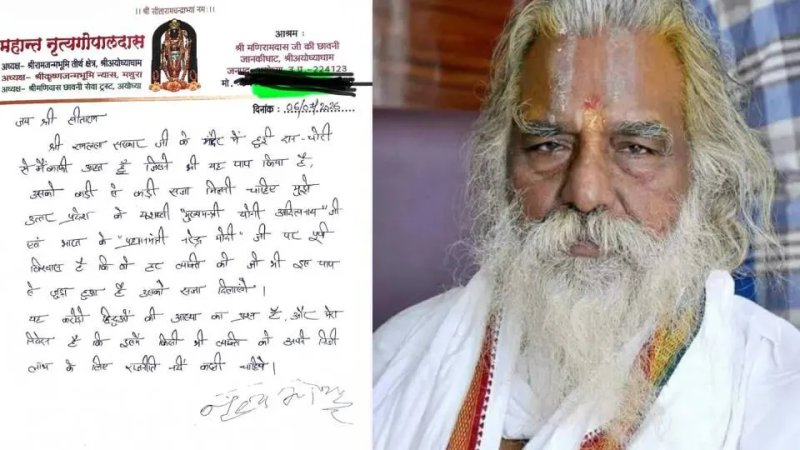 ।। श्री सीतारामचन्द्राभ्यां नमः ।।
महान्त नृत्यगोपालदास
अध्यक्ष- श्रीरामजन्मभूमि तीर्थ क्षेत्र, श्रीअयोध्याधाम
अध्यक्ष- श्रीकृष्णजन्मभूमि न्यास, मथुरा
अध्यक्ष- श्रीमणिरामदास छावनी सेवा ट्रस्ट, अयोध्या
आश्रम :
श्री मणिरामदास जी की छावनी
जानकीघाट, श्रीअयोध्याधाम
उ.प.-224123
मो.
दिनांक :
जय श्री सीताराम
श्री रामलला सरकार जी के मंदिर में हुई दान-चोरी
से मैं काफी आहत हूँ जिसने भी यह पाप किया है,
उसको कड़ी से कड़ी सजा मिलनी चाहिए मुझे
उत्तर प्रदेश के यशस्वी "मुख्यमन्त्री योगी आदित्यनाथ" जी
एवं भारत के "प्रधानमंत्री नरेन्द्र मोदी" जी पर पूर्ण
विश्वास है कि वो हर व्यक्ति को जो भी इस पाप
से जुड़ा हुआ है उसको सजा दिलाएंगे।
यह करोड़ो हिंदुओं की आस्था का प्रश्न है, और मेरा
निवेदन है कि इसमें किसी भी व्यक्ति को अपने निजी
लाभ के लिए राजनीति नहीं करनी चाहिये।